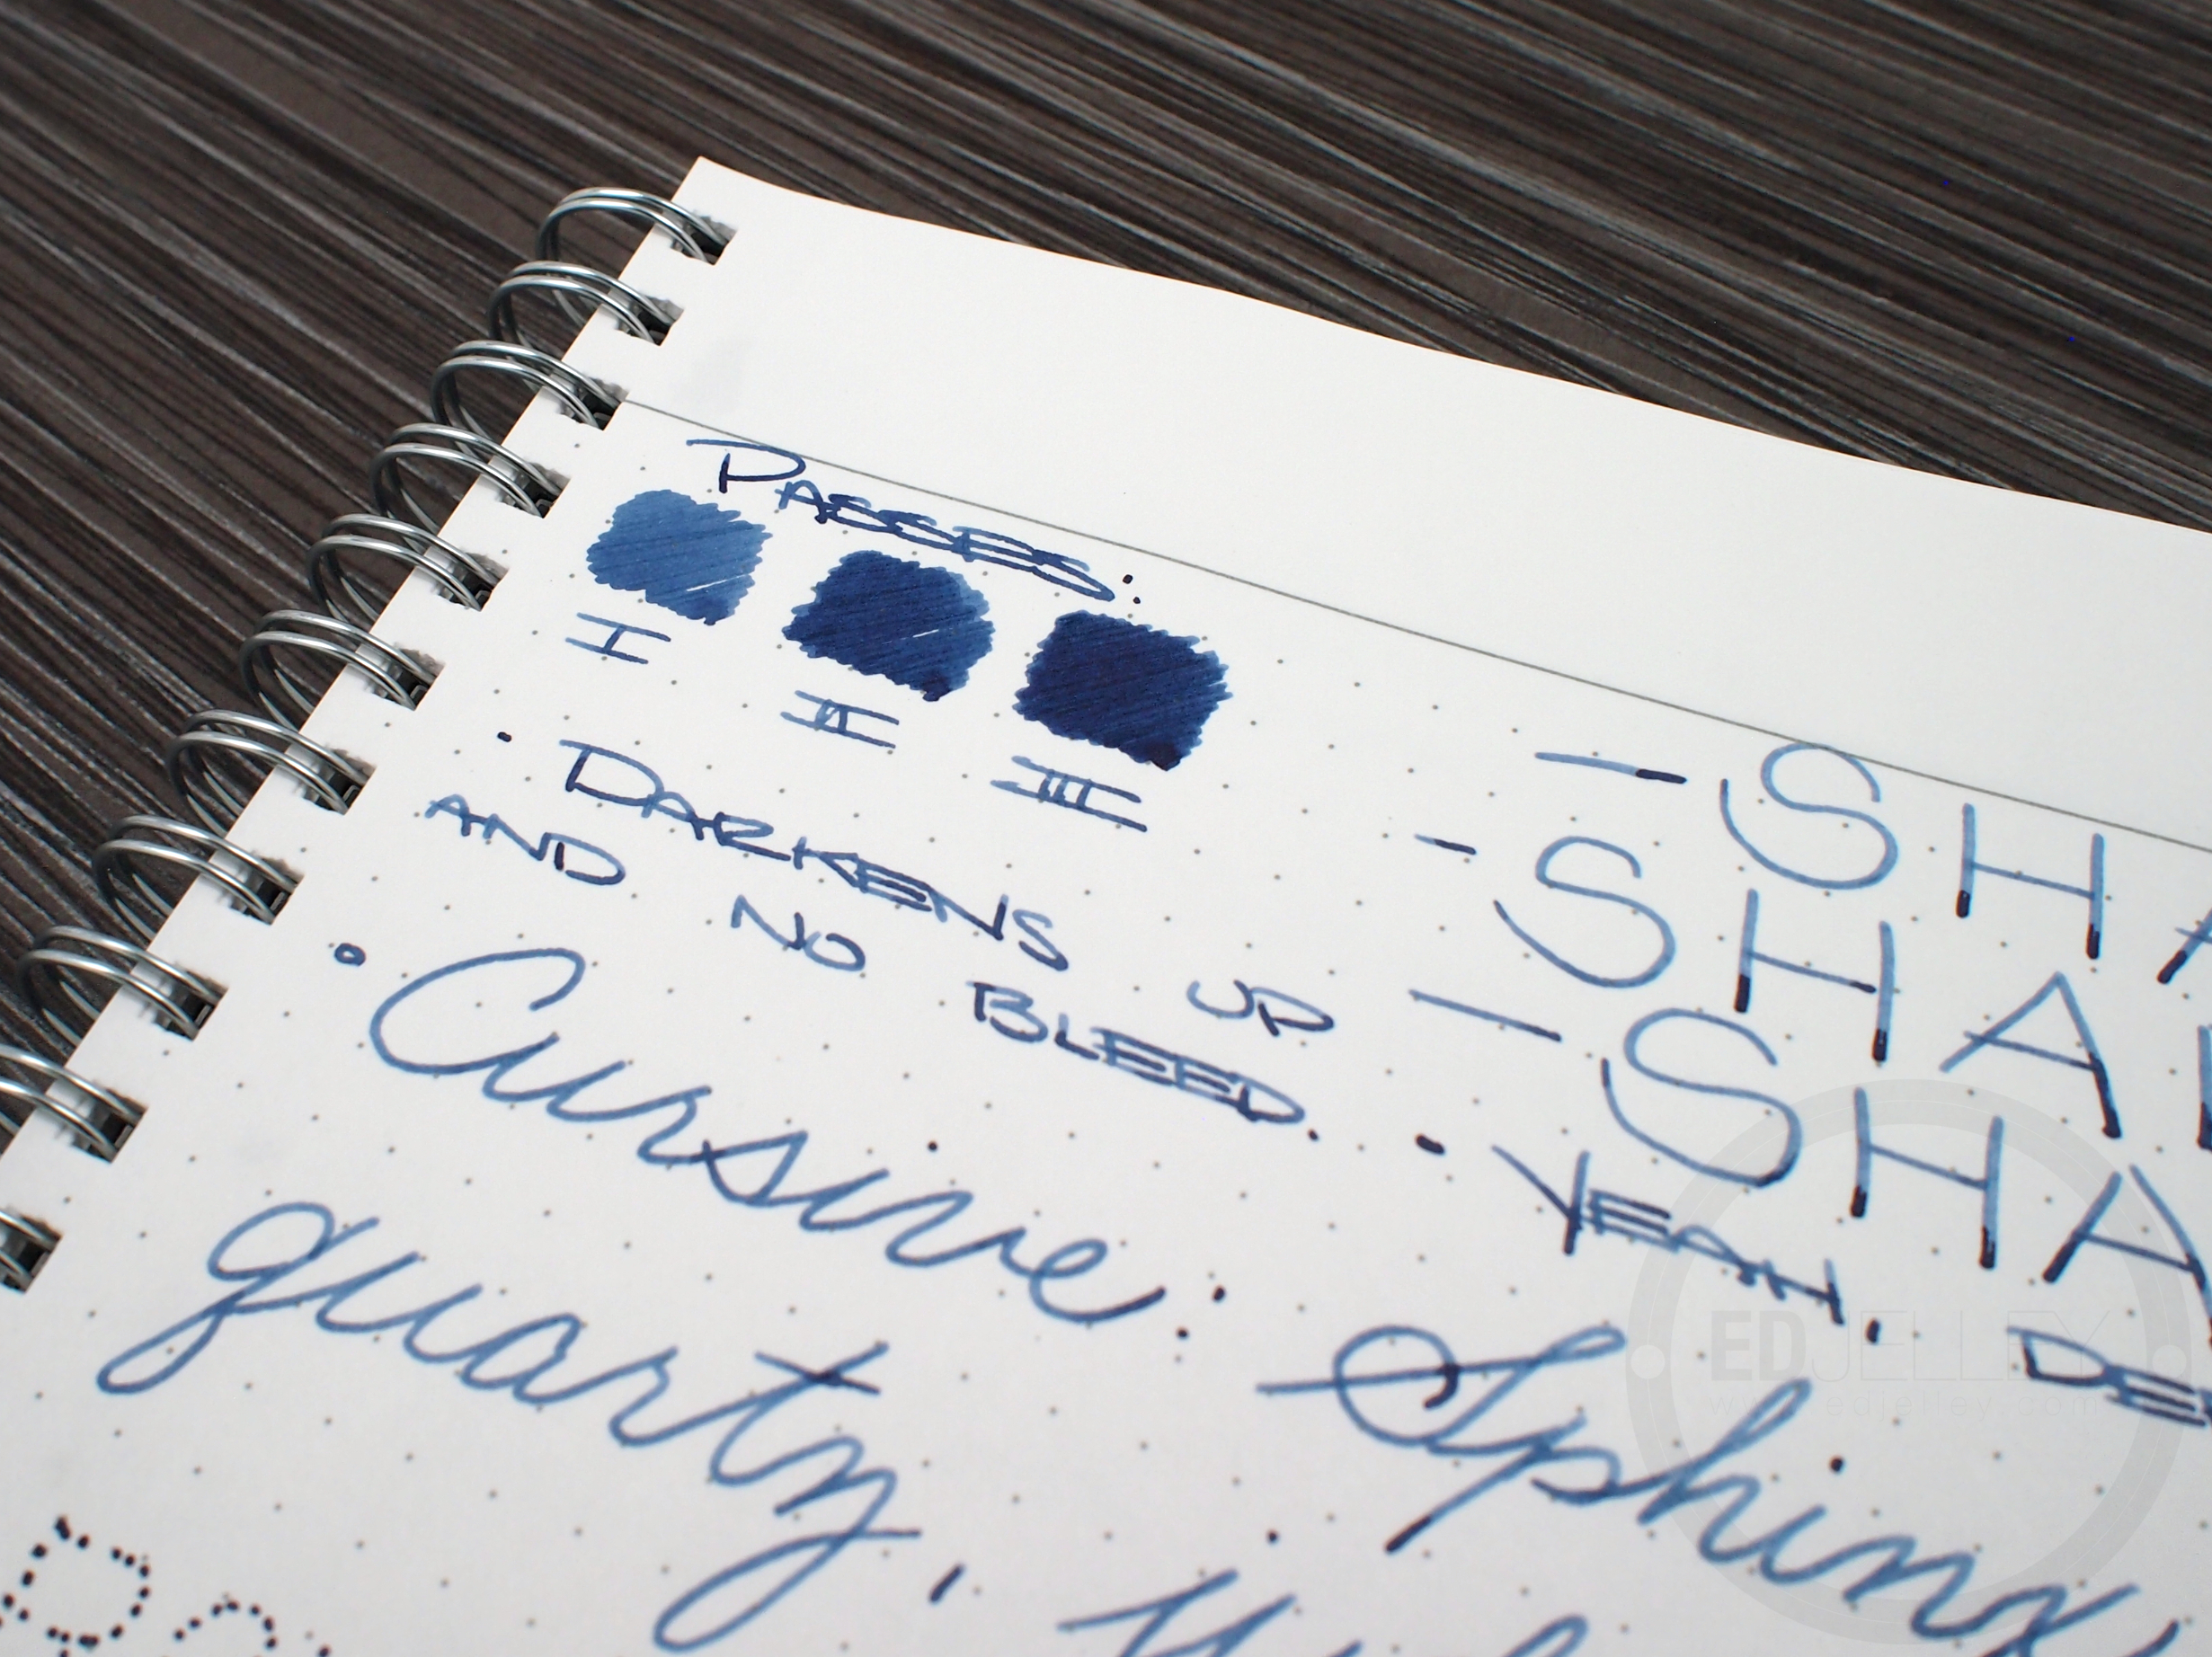 PASSES:
I II III
· DARKENS UP
AND NO BLEED.
- SHA
- SHA
- SHA
· YEAH. DE
· Cursive: Sphinx
quartz,
EDJELLEY
www.edjelley.com